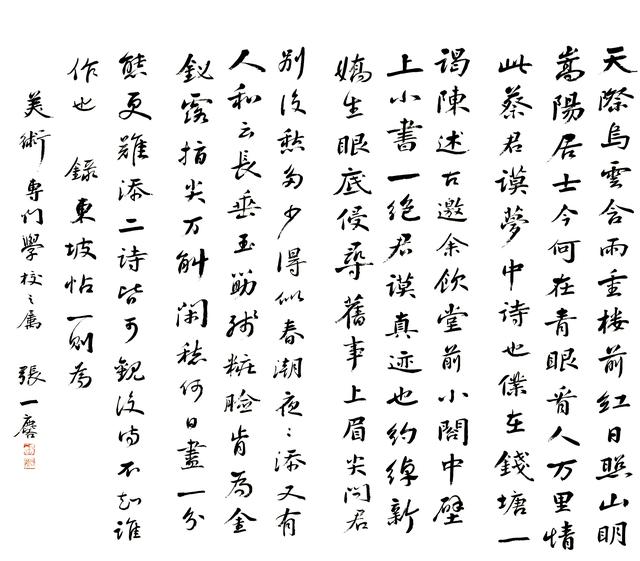 天際烏雲含雨重楼前紅日照山明
嵩陽居士今何在青眼看人万里情
此蔡君謨夢中詩也僕在錢塘一
謁陳述古邀余飲堂前小閣中壁
上小書一絕君謨真迹也約綽新
嬌生眼底侵尋舊事上眉尖问君
别後愁多少得似春潮夜〻添又有
人和云長垂玉筯殘粧臉肯為金
釵露指尖万斛闲愁何日盡一分
態更難添二詩皆可觀後詩不知誰
作也 錄東坡帖一則為
美術專门學校之屬 張一麐